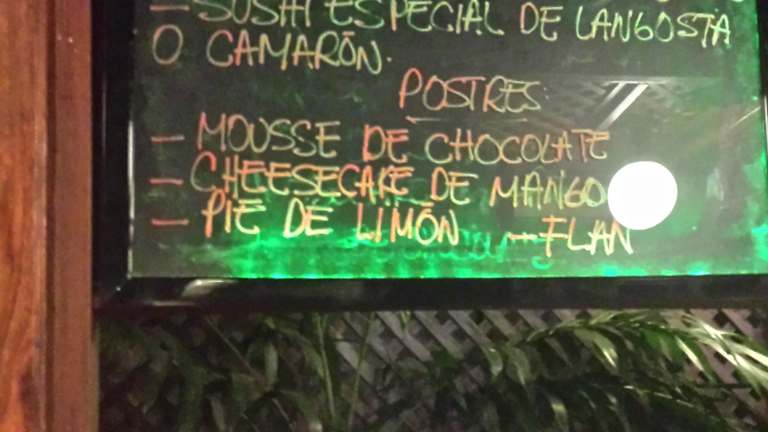 - SUSHI ESPECIAL DE LANGOSTA
O CAMARÓN.
POSTRES:
- MOUSSE DE CHOCOLATE
- CHEESECAKE DE MANGO
- PIE DE LIMÓN - FLAN